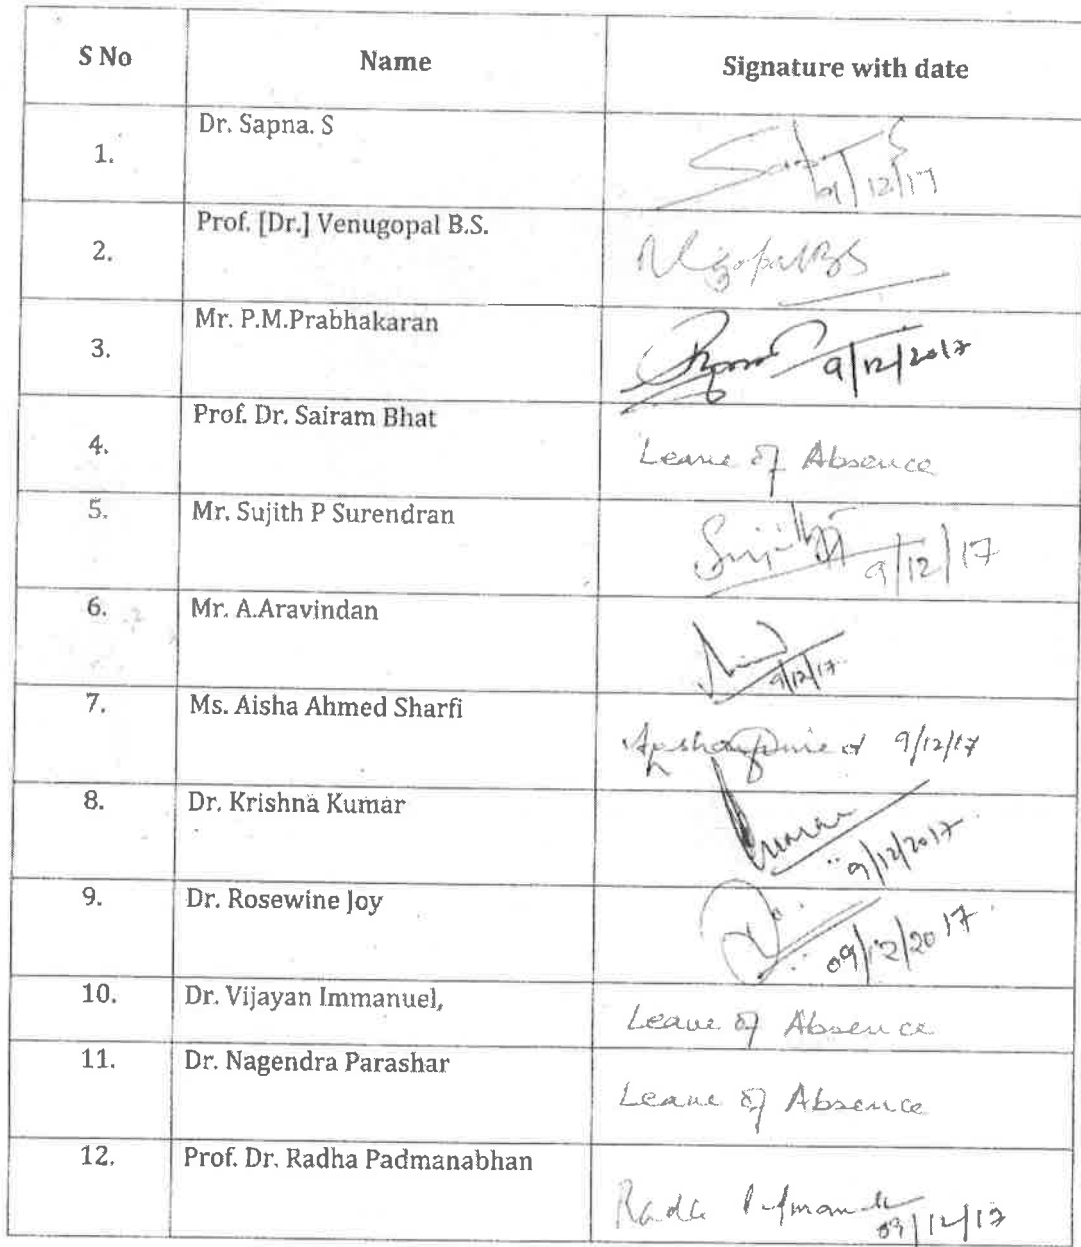 S No Name Signature with date
1. Dr. Sapna. S
9/12/17
2. Prof. [Dr.] Venugopal B.S.
3. Mr. P.M.Prabhakaran
9/12/2017
4. Prof. Dr. Sairam Bhat Leave of Absence
5. Mr. Sujith P Surendran
9/12/17
6. Mr. A.Aravindan
9/12/17
7. Ms. Aisha Ahmed Sharfi
9/12/17
8. Dr. Krishna Kumar
9/12/2017
9. Dr. Rosewine Joy
09/12/2017
10. Dr. Vijayan Immanuel, Leave of Absence
11. Dr. Nagendra Parashar Leave of Absence
12. Prof. Dr. Radha Padmanabhan
09/12/17